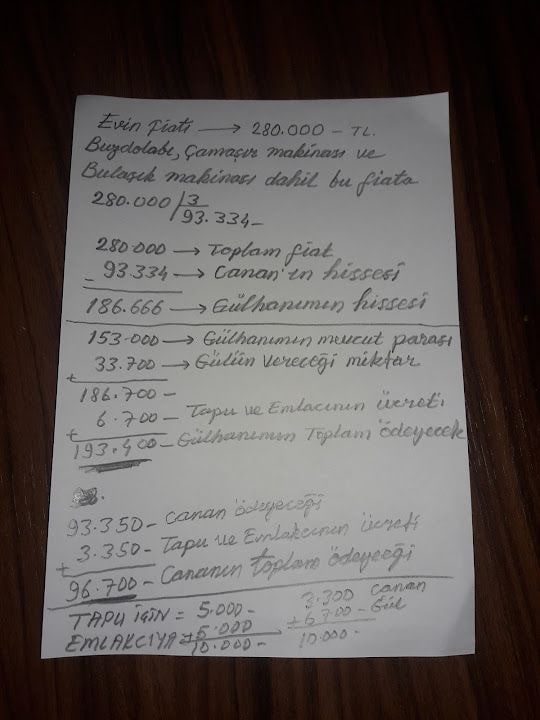 Evin fiatı → 280.000 - TL.
Buzdolabı, Çamaşır makinası ve
Bulaşık makinası dahil bu fiata
280.000 | 3
93.334-
280.000 → Toplam fiat
- 93.334 → Canan'ın hissesi
186.666 → Gülhanımın hissesi
153.000 → Gülhanımın mevcut parası
+ 33.700 → Gülün vereceği miktar
186.700-
+ 6.700 - Tapu ve Emlacının ücreti
193.400 - Gülhanımın Toplam ödeyecek
93.350 - Canan ödeyeceği
+ 3.350 - Tapu ve Emlakcının ücreti
96.700 - Cananın toplam ödeyeceği
TAPU İÇİN = 5.000-
EMLAKCIYA = +5.000
10.000-
3.300 Canan
+ 6700 - Gül
10.000-